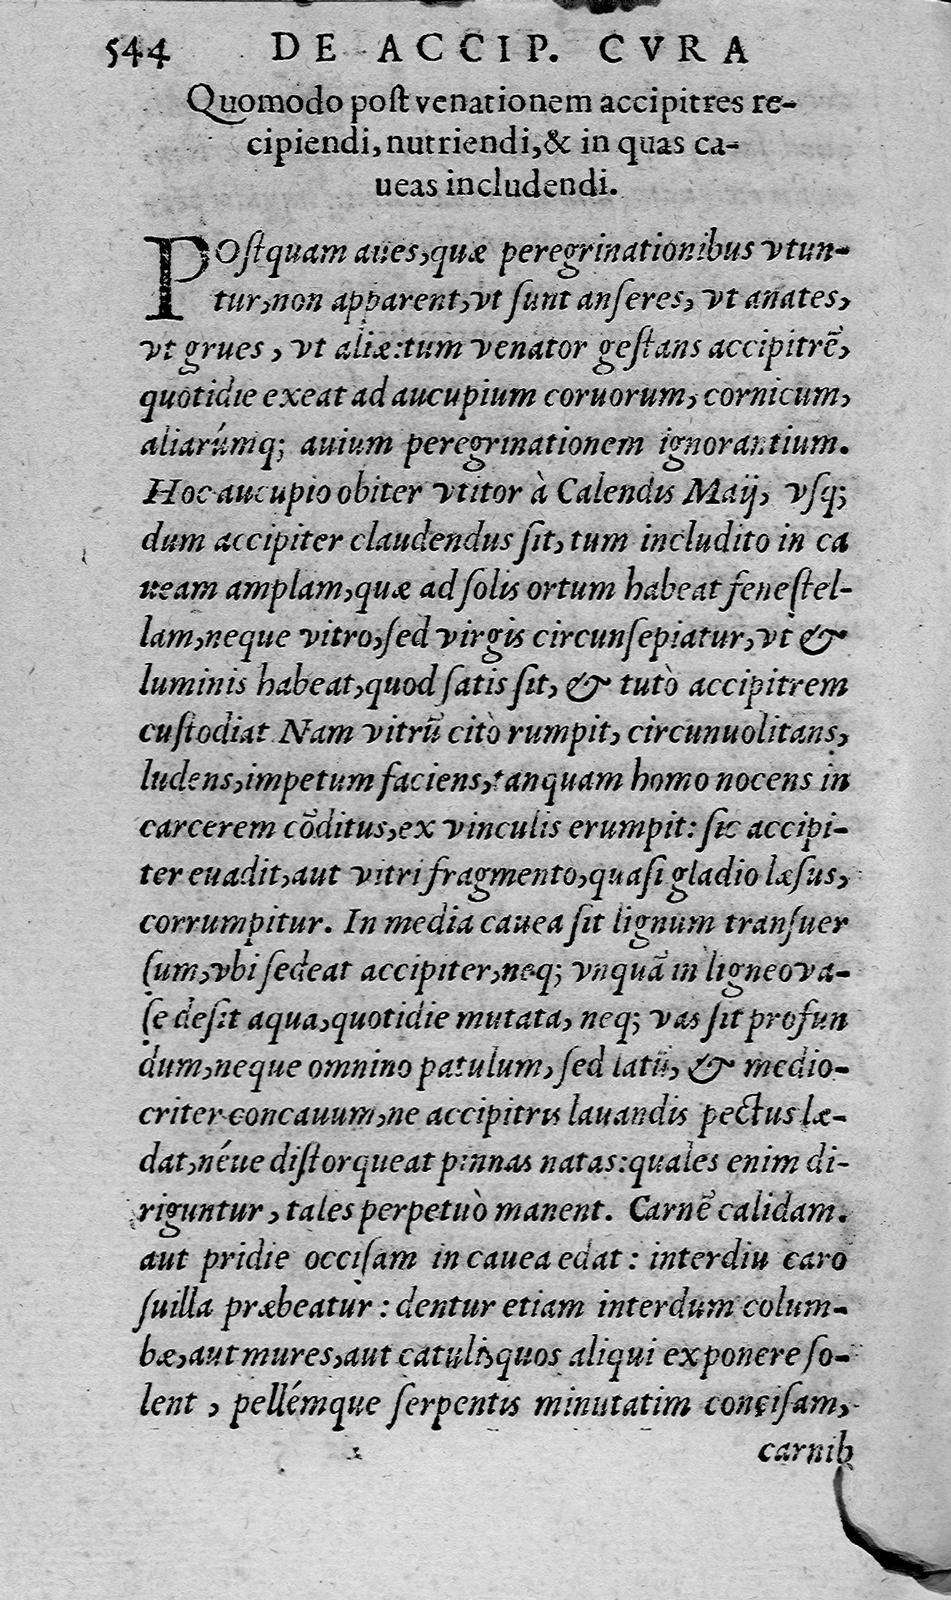 544 DE ACCIP. CVRA
Quomodo poſt venationem accipitres re-
cipiendi, nutriendi, & in quas ca-
ueas includendi.
POſtquam aues, quæ peregrinationibus vtun-
tur, non apparent, vt ſunt anſeres, vt anates,
vt grues, vt aliæ: tum venator geſtans accipitrẽ,
quotidie exeat ad aucupium coruorum, cornicum,
aliarúmq; auium peregrinationem ignorantium.
Hoc aucupio obiter vtitor à Calendis Maij, vſq;
dum accipiter claudendus ſit, tum includito in ca
ueam amplam, quæ ad ſolis ortum habeat feneſtel-
lam, neque vitro, ſed virgis circunſepiatur, vt &
luminis habeat, quod ſatis ſit, & tutò accipitrem
cuſtodiat Nam vitrũ citò rumpit, circunuolitans,
ludens, impetum faciens, tanquam homo nocens in
carcerem cõditus, ex vinculis erumpit: ſic accipi-
ter euadit, aut vitri fragmento, quaſi gladio læſus,
corrumpitur. In media cauea ſit lignum tranſuer
ſum, vbi ſedeat accipiter, neq; vnquã in ligneo va-
ſe deſit aqua, quotidie mutata, neq; vas ſit profun
dum, neque omnino patulum, ſed latũ, & medio-
criter concauum, ne accipitris lauandis pectus læ-
dat, néue diſtorqueat pinnas natas: quales enim di-
riguntur, tales perpetuò manent. Carnẽ calidam.
aut pridie occiſam in cauea edat: interdiu caro
ſuilla præbeatur: dentur etiam interdum colum-
bæ, aut mures, aut catuli, quos aliqui exponere ſo-
lent, pellémque ſerpentis minutatim conciſam,
carnib